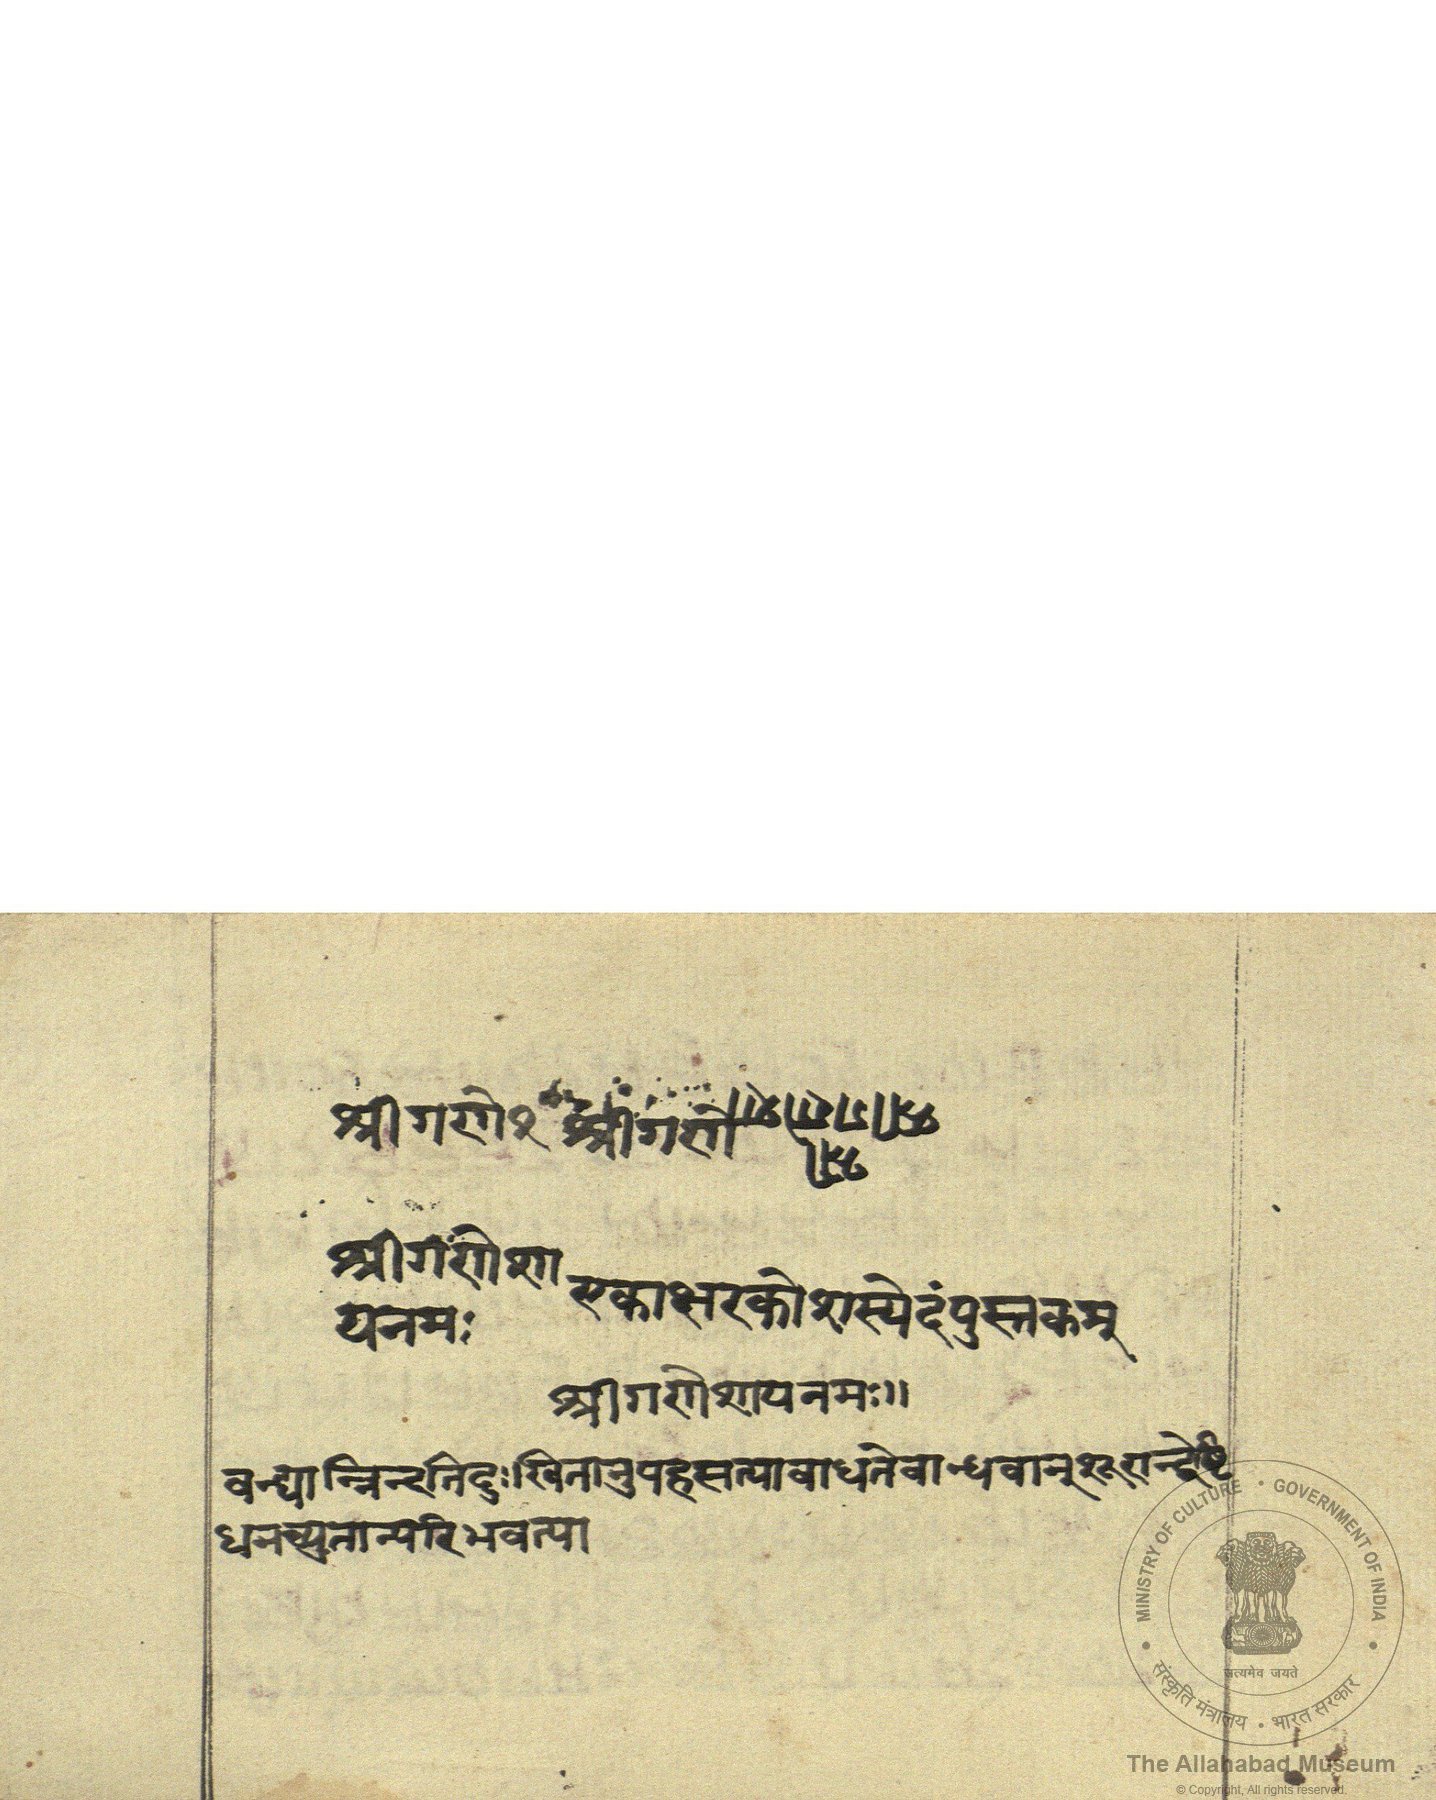 श्रीगणे१ श्रीगणे
श्रीगणेशा
यनमः
एकाक्षरकोशस्येदंपुस्तकम्
श्रीगणेशायनमः॥
वन्द्यान्निन्दतिदुःखितानुपहसत्याबाधतेबान्धवान्शूरान्द्वेष्टि
धनच्युतान्परिभवत्या
MINISTRY OF CULTURE · GOVERNMENT OF INDIA
सत्यमेव जयते
संस्कृति मंत्रालय · भारत सरकार
The Allahabad Museum
© Copyright, All rights reserved.